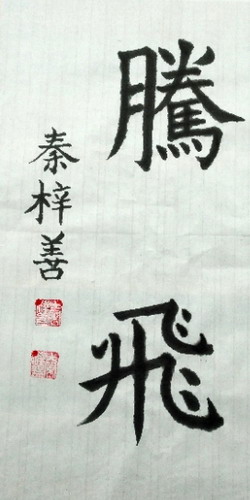 騰飛
秦梓善